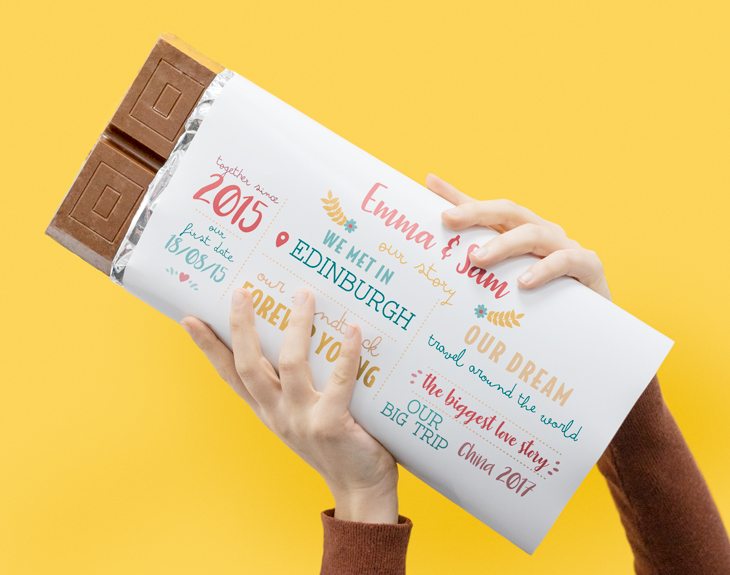 Emma & Sam
our story
together since
2015
our
first date
18/08/15
WE MET IN
EDINBURGH
our
FOREV YO NG
OUR DREAM
travel around the world
the biggest love story
OUR
BIG TRIP
China 2017